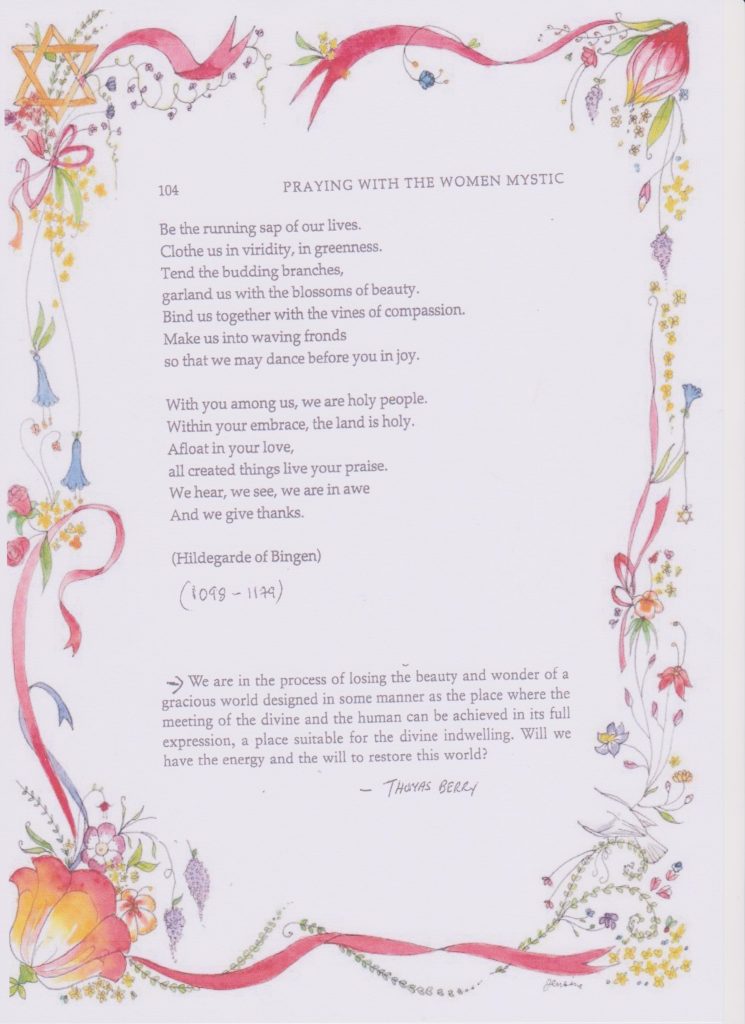 104 PRAYING WITH THE WOMEN MYSTIC
Be the running sap of our lives.
Clothe us in viridity, in greenness.
Tend the budding branches,
garland us with the blossoms of beauty.
Bind us together with the vines of compassion.
Make us into waving fronds
so that we may dance before you in joy.
With you among us, we are holy people.
Within your embrace, the land is holy.
Afloat in your love,
all created things live your praise.
We hear, we see, we are in awe
And we give thanks.
(Hildegarde of Bingen)
(1098 - 1179)
→ We are in the process of losing the beauty and wonder of a
gracious world designed in some manner as the place where the
meeting of the divine and the human can be achieved in its full
expression, a place suitable for the divine indwelling. Will we
have the energy and the will to restore this world?
- THOMAS BERRY